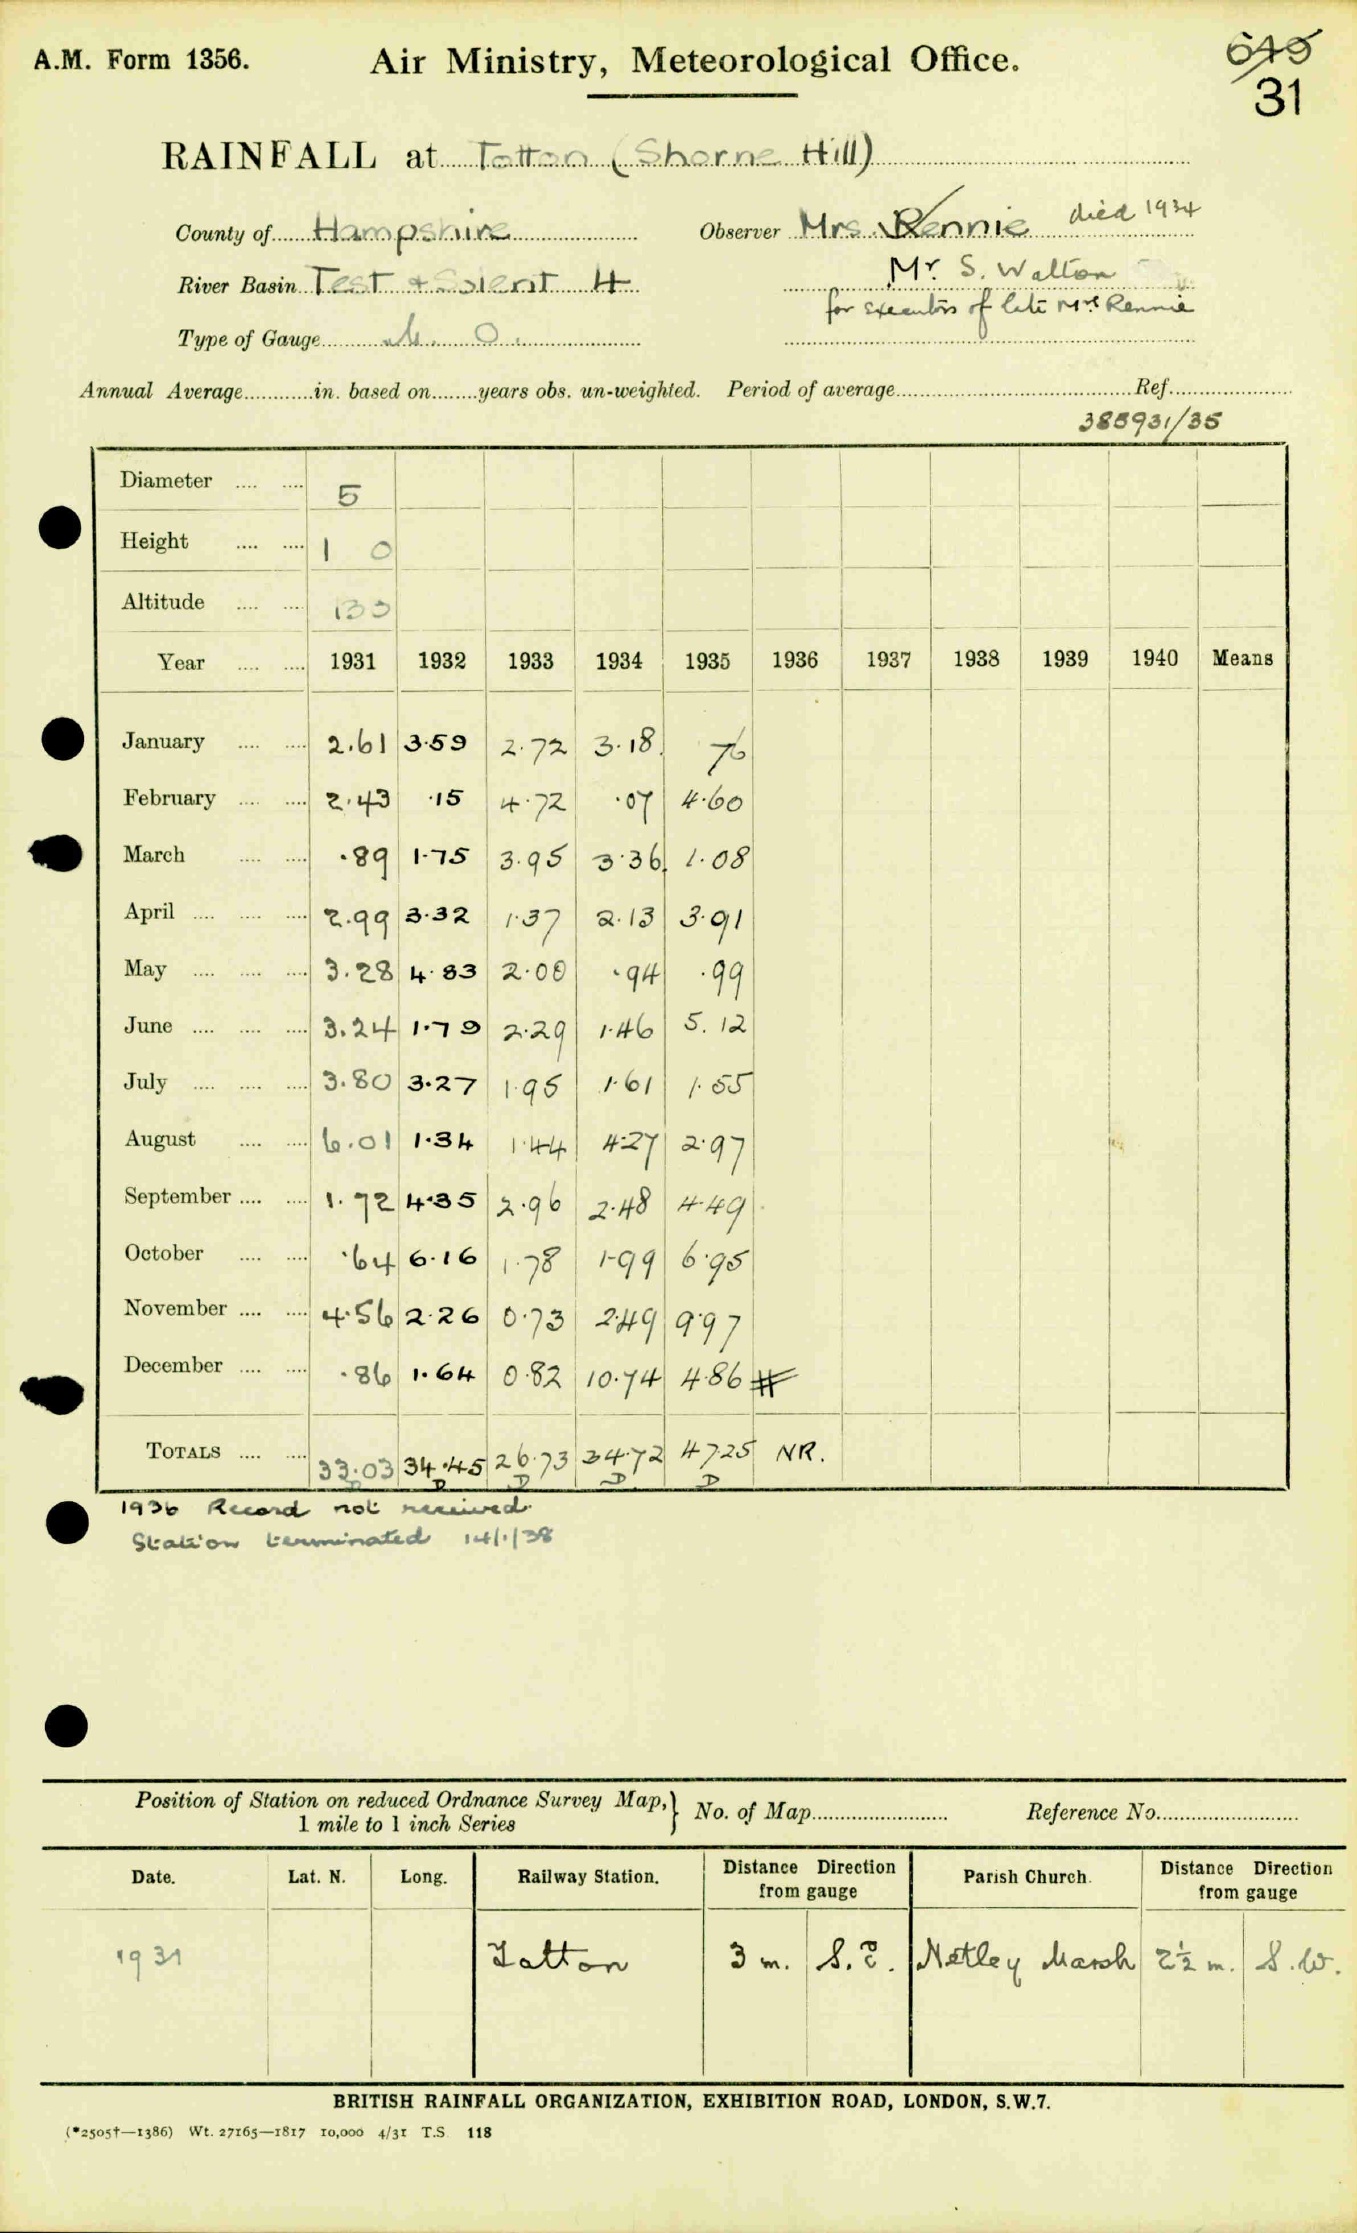 A.M. Form 1356. Air Ministry, Meteorological Office. 649
31
RAINFALL at Totton (Shorne Hill)
County of Hampshire Observer Mrs. Rennie died 1934
River Basin Test + Solent 4 Mr. S. Walton
for executors of late Mrs Rennie
Type of Gauge M. O.
Annual Average in. based on years obs. un-weighted. Period of average Ref.
385931/35
Diameter 5
Height 1 0
Altitude 133
Year 1931 1932 1933 1934 1935 1936 1937 1938 1939 1940 Means
January 2.61 3.59 2.72 3.18 .76
February 2.43 .15 4.72 .07 4.60
March .89 1.75 3.95 3.36 1.08
April 2.99 3.32 1.37 2.13 3.91
May 3.28 4.83 2.00 .94 .99
June 3.24 1.79 2.29 1.46 5.12
July 3.80 3.27 1.95 1.61 1.55
August 6.01 1.34 1.44 4.27 2.97
September 1.72 4.35 2.96 2.48 4.49
October .64 6.16 1.78 1.99 6.95
November 4.56 2.26 0.73 2.49 9.97
December .86 1.64 0.82 10.74 4.86 #
TOTALS 33.03 34.45 26.73 34.72 47.25 NR.
D D D D D
1936 Record not received
Station terminated 14/1/38
Position of Station on reduced Ordnance Survey Map, } No. of Map Reference No.
1 mile to 1 inch Series
Date. Lat. N. Long. Railway Station. Distance Direction from gauge Parish Church. Distance Direction from gauge
1931 Totton 3 m. S.E. Netley Marsh 2½ m. S.W.
BRITISH RAINFALL ORGANIZATION, EXHIBITION ROAD, LONDON, S.W.7.
(*2505†—1386) Wt. 27165—1817 10,000 4/31 T.S. 118